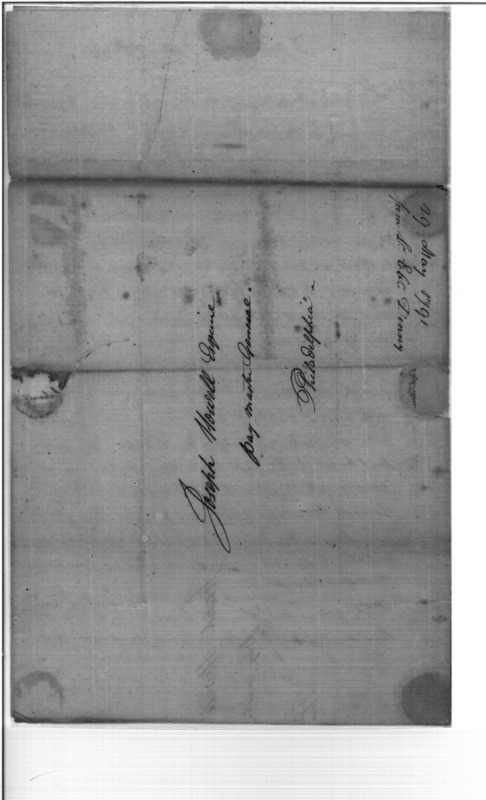 Joseph Howell Esquire.
pay master General.
Philadelphia
29 May 1791
from Lt. Ebr. Denny